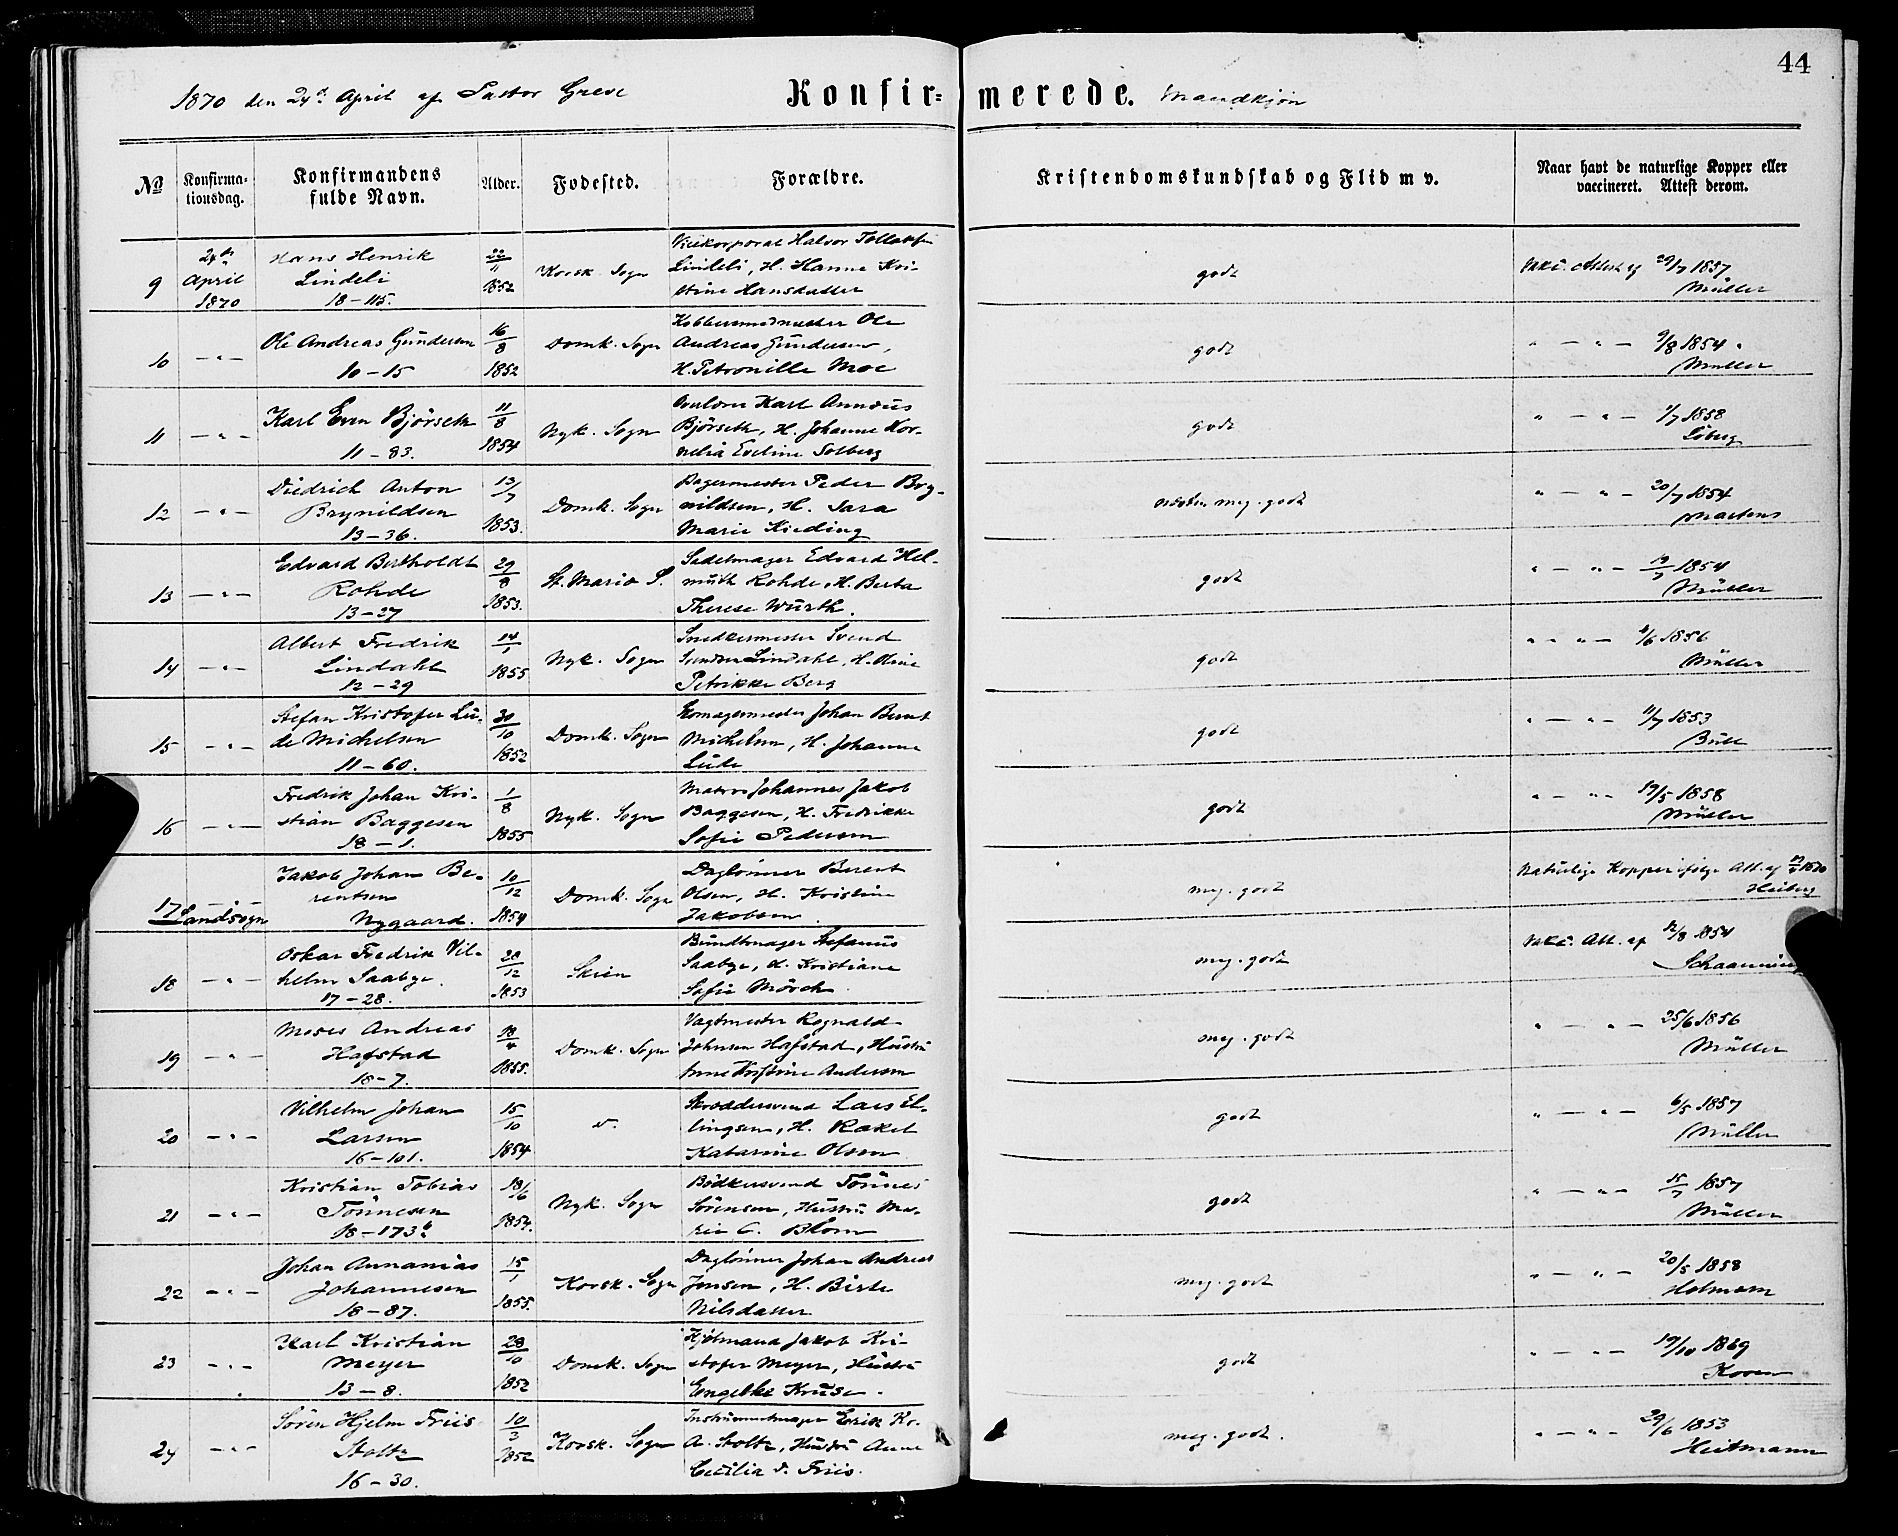 44
1870 den 24de April af Pastor Greve Konfir= merede. Mandkjøn
No Konfirma-tionsdag. Konfirmandens fulde Navn. Alder. Fødested. Forældre. Kristendomskundskab og Flid m v. Naar havt de naturlige Kopper eller vaccineret. Attest derom.
9 24de April 1870 Hans Henrik Lindeli 18-115. 22/11 1852 Korsk. Sogn Vicekorporal Halvor Lindeli, H. Hanne Kri-stine Hansdatter godt Vakc. Attest af 29/7 1857 Müller
10 -"- Ole Andreas Gundersen 10-15 16/8 1852 Domk. Sogn Kobbersmedmester Ole Andreas Gundersen, H. Petronille Moe godt " - " - 9/8 1854. Müller
11 -"- Karl Even Björseth 11-83. 11/8 1854 Nyk. Sogn Karl Annæus Björseth, H. Johanne Kor-nelia Eveline Solberg godt " - " - /7 1858 Löberg
12 -"- Diedrich Anton Brynildsen 13-36. 13/7 1853. Domk. Sogn Bagermester Peder Bry-nildsen, H. Sara Marie Kieding næsten meg. godt " - " - 20/7 1854 Martens
13 -"- Edvard Bertholdt Rohde 13-27 29/8 1853. St. Mariæ S. Sadelmager Edvard Hel-muth Rohde, H. Berta Therese Wurth. godt " - " - 19/7 1854 Müller
14 -"- Albert Fredrik Lindahl 12-29 14/1 1855 Nyk. Sogn Snedkermester Svend Lindahl, H. Oline Petrikke Berg godt " - " - /6 1856 Müller
15 -"- Stefan Kristofer Lü-de Michelsen 11-60. 30/10 1852 Domk. Sogn Skomagermester Johan Bernt Michelsen, H. Johanne Lüde godt " - " - 11/7 1853 Bull
16 -"- Fredrik Johan Kri-stian Baggesen 18-1. 1/8 1855 Nyk. Sogn Matros Johannes Jakob Baggesen, H. Fredrikke Sofie Pedersen godt " - " - 19/5 1858 Müller
17 -"- Landsogn Jakob Johan Be-rentsen Nygaard. 10/12 1854 Domk. Sogn Daglönner Berent Olsen, H. Kristine Jakobsen meg. godt Naturlige Kopper ifølge Att. af 1870 Heiberg
18 -"- Oskar Fredrik Vil-helm Saabye. 17-28. 28/12 1853 Skien Bundtmager Stefanus Saabye, H. Kristiane Sofie Mörch. meg. godt Vakc. Att. af 12/8 1854 Schaanning
19 -"- Moses Andreas Hafstad 18-7. 18/4 1855. Domk. Sogn Vagtmester Rognald Johnsen Hafstad, Hustru Anne Kristine Andersen meg. godt " - " - 25/6 1856 Müller
20 -"- Vilhelm Johan Larsen 16-101. 15/10 1854 Skræddersvend Lars El-lingsen, H. Rakel Katarine Olsen godt " - " - 6/5 1857 Müller
21 -"- Kristian Tobias Tönnesen 18-173b 18/6 1854. Nyk. Sogn Bödkersvend Tönnes Sörensen, Hustru Ma-rie C. Blom godt " - " - 15/7 1857 Müller
22 -"- Johan Annanias Johannesen 18-87. 15/1 1855. Korsk. Sogn Daglönner Johan Andreas Jensen, H. Birte Nilsdatter meg. godt " - " - 20/5 1858 Holmsen
23 -"- Karl Kristian Meyer 13-8. 28/10 1852 Domk. Sogn Kjöbmand Jakob Kri-stofer Meyer, Hustru Engelke Kruse. godt " - " - 19/10 1869 Koren
24 -"- Sören Hjelm Friis Stoltz 16-30. 10/3 1852 Korsk. Sogn Instrumentmager Erik Kr. A. Stoltz, Hustru Anne Cecilia d. Friis. meg. godt. " - " - 29/6 1853 Heitmann